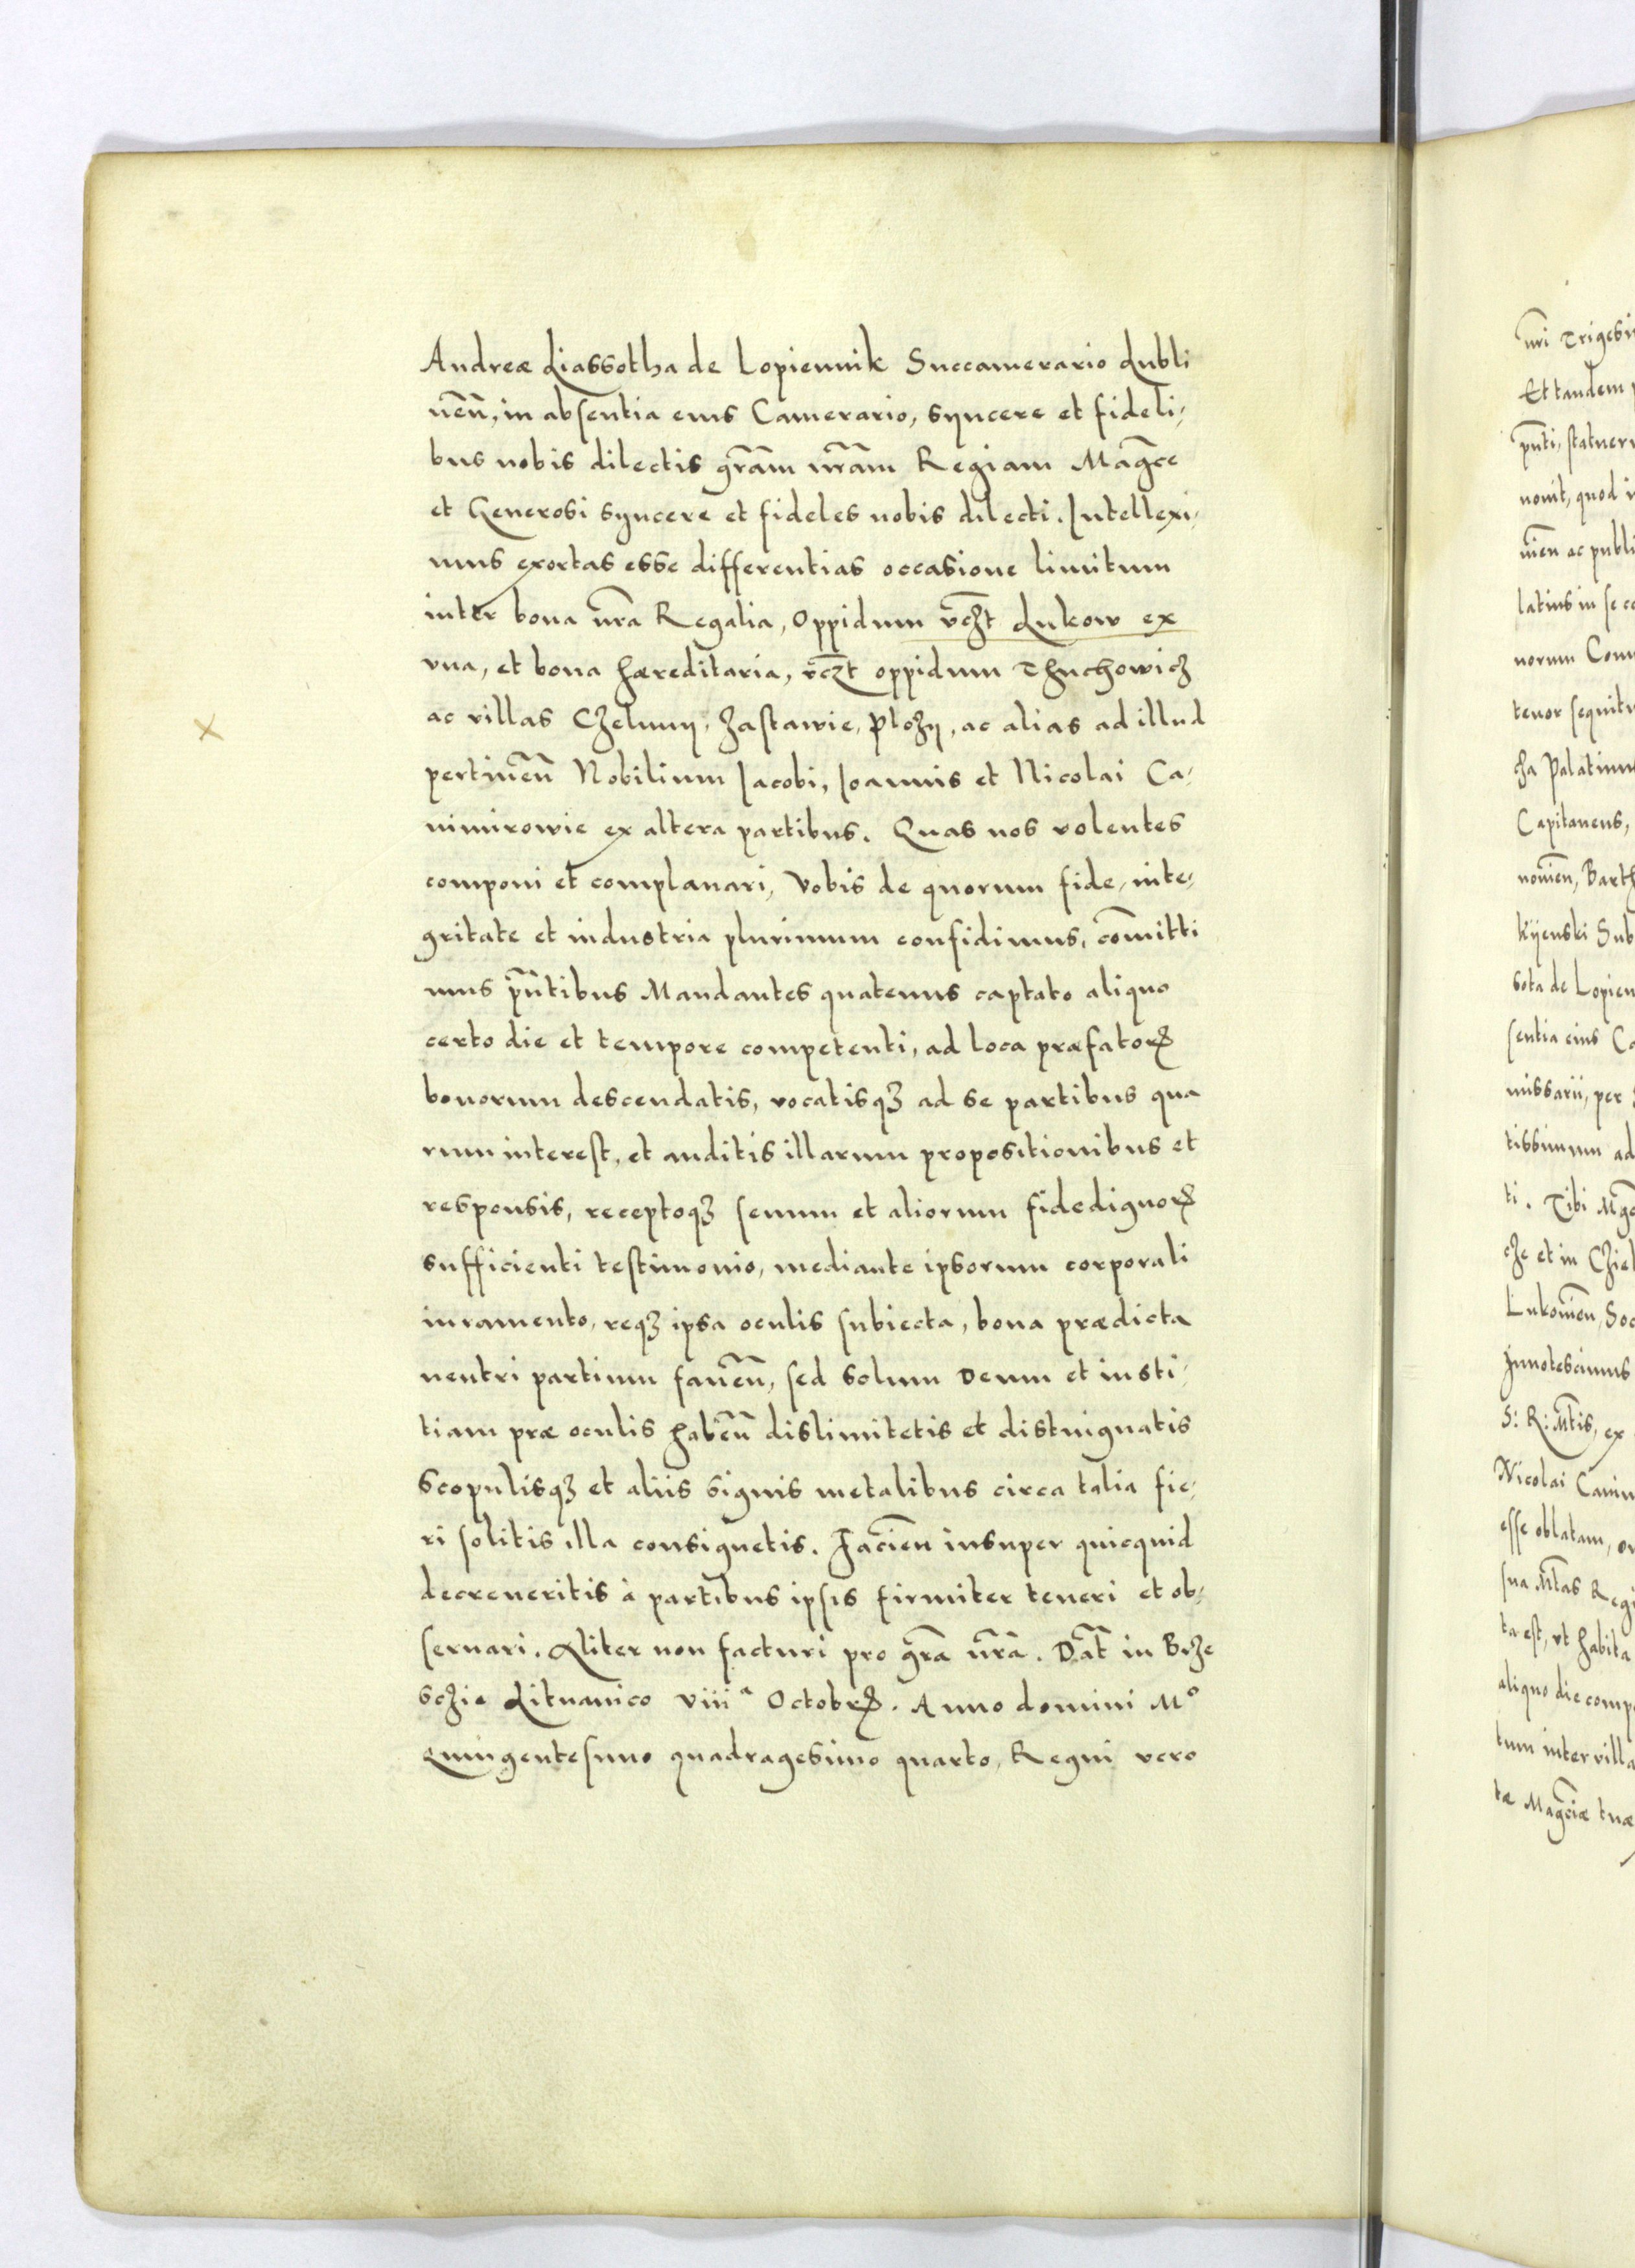 Andreæ Liassotha de Lopiennik Succamerario Lubli
nēn̄, in absentia eius Camerario, syncere et fideli,
bus nobis dilectis gr̄am nr̄am Regiam Mag̅ce
et Generosi syncere et fideles nobis dilecti. Intellexi,
mus exortas esse differentias occasione limitum
inter bona nr̄a Regalia, Oppidum vc̄zt Lukow ex
vna, et bona hæreditaria, vc̄zt oppidum Thuchowicz
ac villas Czelmij, Zastawie, Plozij, ac alias ad illud
pertinēn̄ Nobilium Jacobi, Joannis et Nicolai Ca,
nimirowie ex altera partibus. Quas nos volentes
componi et complanari, Vobis de quorum fide, inte,
gritate et industria plurimum confidimus, com̄itti
mus pn̄tibus Mandantes quatenus captato aliquo
certo die et tempore competenti, ad loca præfatorꝝ
bonorum descendatis, vocatisqꝫ ad se partibus qua
rum interest, et auditis illarum propositionibus et
responsis, receptoqꝫ senum et aliorum fidedignorꝝ
sufficienti testimonio, mediante ipsorum corporali
iuramento, reqꝫ ipsa oculis subiecta, bona prædicta
neutri partium fauēn̄, sed solum Deum et iusti,
tiam præ oculis habēn̄ dislimitetis et distinguatis
Scopulisqꝫ et aliis signis metalibus circa talia fie,
ri solitis illa consignetis. Facien̄ insuper quicquid
decreueritis à partibus ipsis firmiter teneri et ob,
seruari. Aliter non facturi pro gr̄a nr̄a. Dat̄ in Brze
sczie Lituanico viiiª Octobrꝝ. Anno domini Mº
Quingentesimo quadragesimo quarto, Regni vero
nr̄i Trigesi
Et tandem
pn̄ti, statuer
nouit, quod
mien̄ ac publi
latius in se
norum Com
tenor sequit
cha Palatinu
Capitaneus,
nomien̄, Barth
kijenski Sub
sota de Lopien
sentia eius
missarii, per
tissimum ad
ti. Tibi
cze et in Cziel
Lukowien̄, Soc
Innotescimus
S: R: Mtis, ex
Nicolai Canim
esse oblatam,
sua Mtas Regi
ta est, vt habita
aliquo die comp
tum inter villa
tæ Mag̅ciæ tuæ